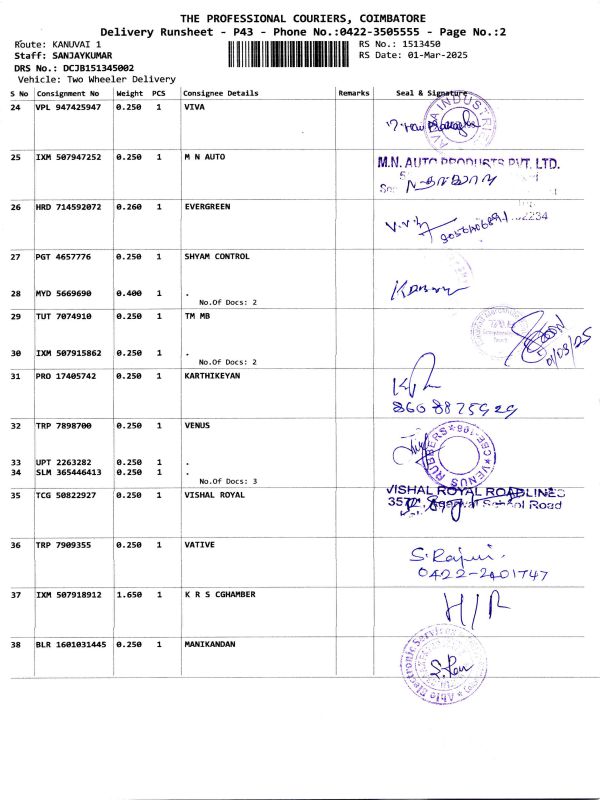 THE PROFESSIONAL COURIERS, COIMBATORE
Delivery Runsheet - P43 - Phone No.:0422-3505555 - Page No.:2
Route: KANUVAI 1
RS No.: 1513450
Staff: SANJAYKUMAR
RS Date: 01-Mar-2025
DRS No.: DCJB151345002
Vehicle: Two Wheeler Delivery
S No Consignment No Weight PCS Consignee Details Remarks Seal & Signature
24 VPL 947425947 0.250 1 VIVA
25 IXM 507947252 0.250 1 M N AUTO
M.N. AUTO PRODUCTS PVT. LTD.
26 HRD 714592072 0.260 1 EVERGREEN
27 PGT 4657776 0.250 1 SHYAM CONTROL
28 MYD 5669690 0.400 1 .
No.Of Docs: 2
29 TUT 7074910 0.250 1 TM MB
01/03/25
30 IXM 507915862 0.250 1 .
No.Of Docs: 2
31 PRO 17405742 0.250 1 KARTHIKEYAN
860 8875929
32 TRP 7898700 0.250 1 VENUS
VENUS RUBBERS
33 UPT 2263282 0.250 1 .
34 SLM 365446413 0.250 1 .
No.Of Docs: 3
35 TCG 50822927 0.250 1 VISHAL ROYAL
VISHAL ROYAL ROADLINES
School Road
36 TRP 7909355 0.250 1 VATIVE
0422-2401747
37 IXM 507918912 1.650 1 K R S CGHAMBER
H/R
38 BLR 1601031445 0.250 1 MANIKANDAN
Able Electronic Services